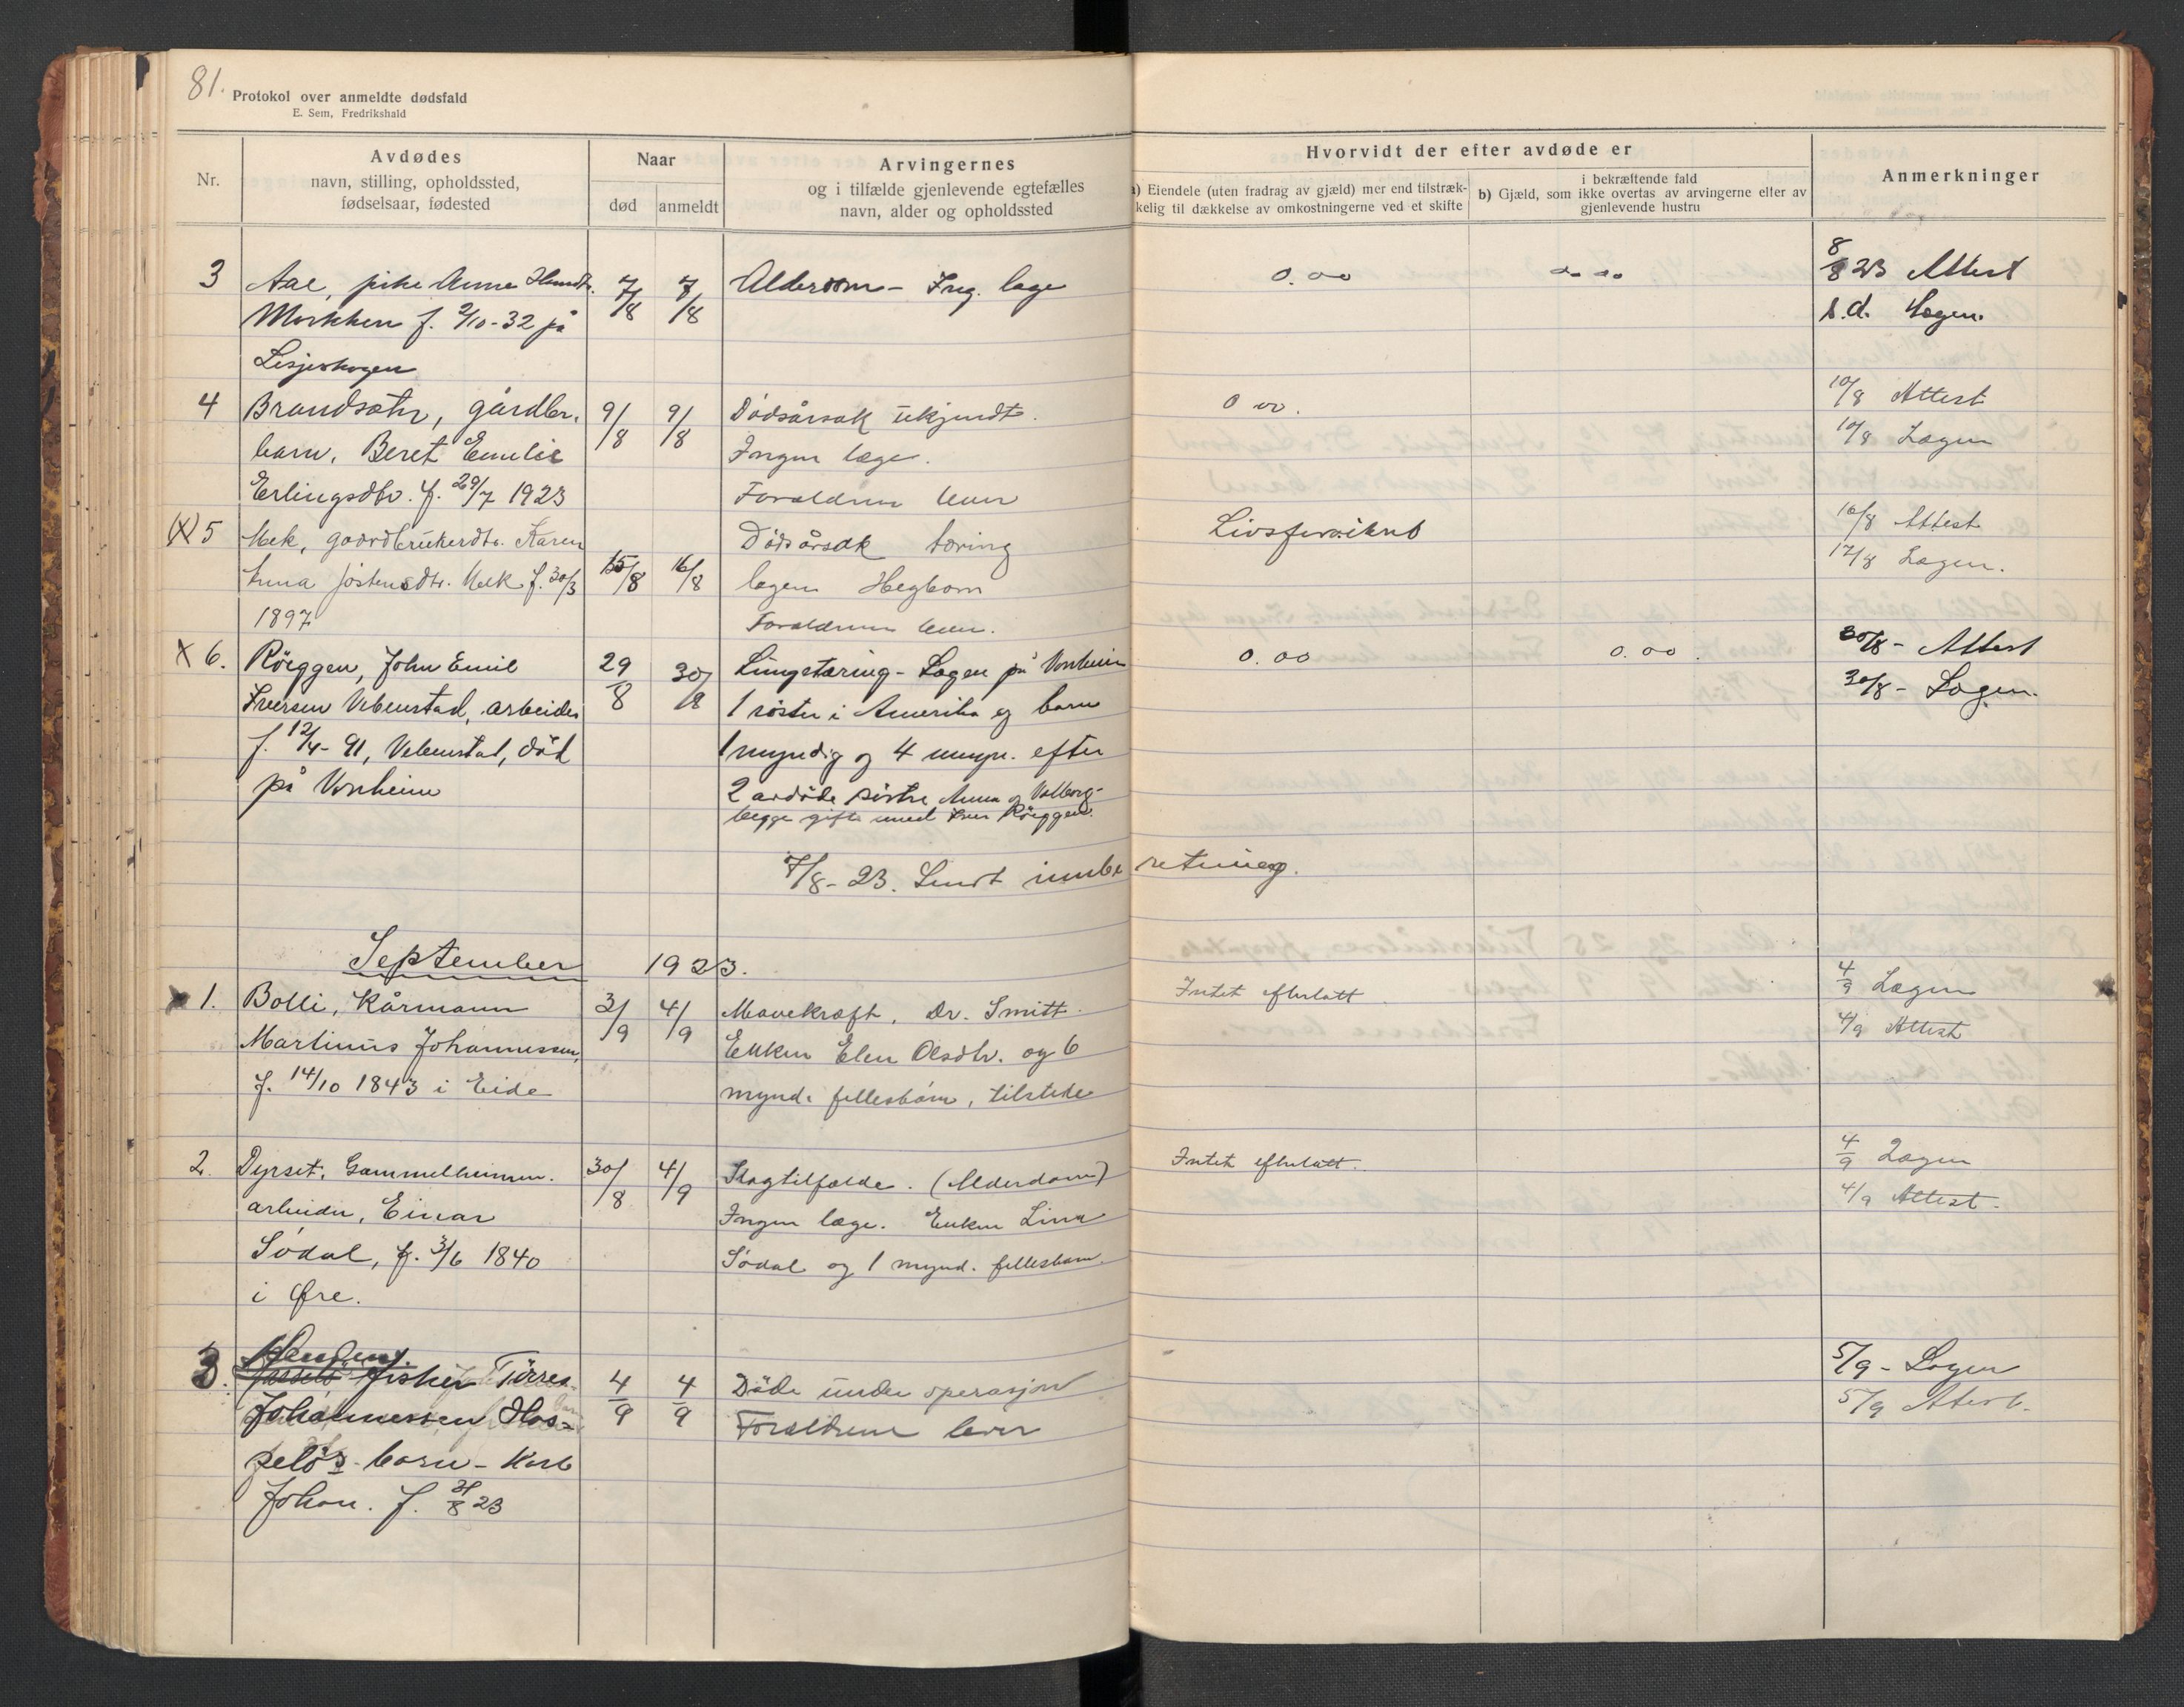 81.
Protokol over anmeldte dødsfald
E. Sem, Fredrikshald
Nr.
Avdødes
navn, stilling, opholdssted,
fødselsaar, fødested
Naar
død
anmeldt
Arvingernes
og i tilfælde gjenlevende egtefælles
navn, alder og opholdssted
Hvorvidt der efter avdøde er
a) Eiendele (uten fradrag av gjæld) mer end tilstræk-
kelig til dækkelse av omkostningerne ved et skifte
i bekræftende fald
b) Gjæld, som ikke overtas av arvingerne eller av
gjenlevende hustru
Anmerkninger
3 Aae, pike Anne 7/8 7/8 Alderdom - Ing. læge 0.00 8/8 23 Attest
Morkken f. 2/10-32 på s.d. Lægen.
Lesjeskogen
4 Brandsætr, gårdbr. 9/8 9/8 Dødsårsak ukjendt. 0 00. 10/8 Attest
barn, Beret Emilie Ingen læge. 10/8 Lægen
Erlingsdtr. f. 29/7 1923 Forældrene lever
(X) 5 Mek, gaardbrukerdtr. Karen Dødsårsak tæring Livsforsikret 16/8 Attest
Anna Jøstensdtr. Mek f. 30/3 15/8 16/8 lægen Hegbom 17/8 Lægen.
1897 Forældrene lever.
X 6. Röeggen, John Emil 29/8 30/8 Lungetæring - Lægen på Vonheim 0.00 0.00. 30/8 - Attest
Iversen Vebenstad, arbeider 1 søster i Amerika og barn 30/8 - Lægen.
f. 12/4-91, Vebenstad, död 1 myndig og 4 umyn. efter
på Vonheim 2 avdöde søstre Anna og Valborg-
begge gift med Iver Röeggen.
7/8-23. Sendt innberetning.
September 1923.
x 1. Bolli, Kårmann 3/9 4/9 Mavekræft, Dr. Smitt. Intet efterlatt. 4/9 Lægen
Martinus Johannessen, Enken Elen Olsdtr. og 6 4/9 Attest
f. 14/10 1843 i Eide mynd. fellesbarn, tilstede
2. Dyrset, Gammelheimen. 30/8 4/9 Slagtilfælde. (Alderdom) Intet efterlatt. 4/9 Lægen
arbeider, Einar Ingen læge. Enken Lina 4/9 Attest.
Södal, f. 3/6 1840 Södal og 1 mynd. fellesbarn.
i Øre.
3. fisker Törres 4/9 4/9 Döde under operasjon 5/9 - Lægen
Johannessen Hos- Forældrene lever 5/9 Atest.
selö's barn - Karl
Johan. f. 31/8 23